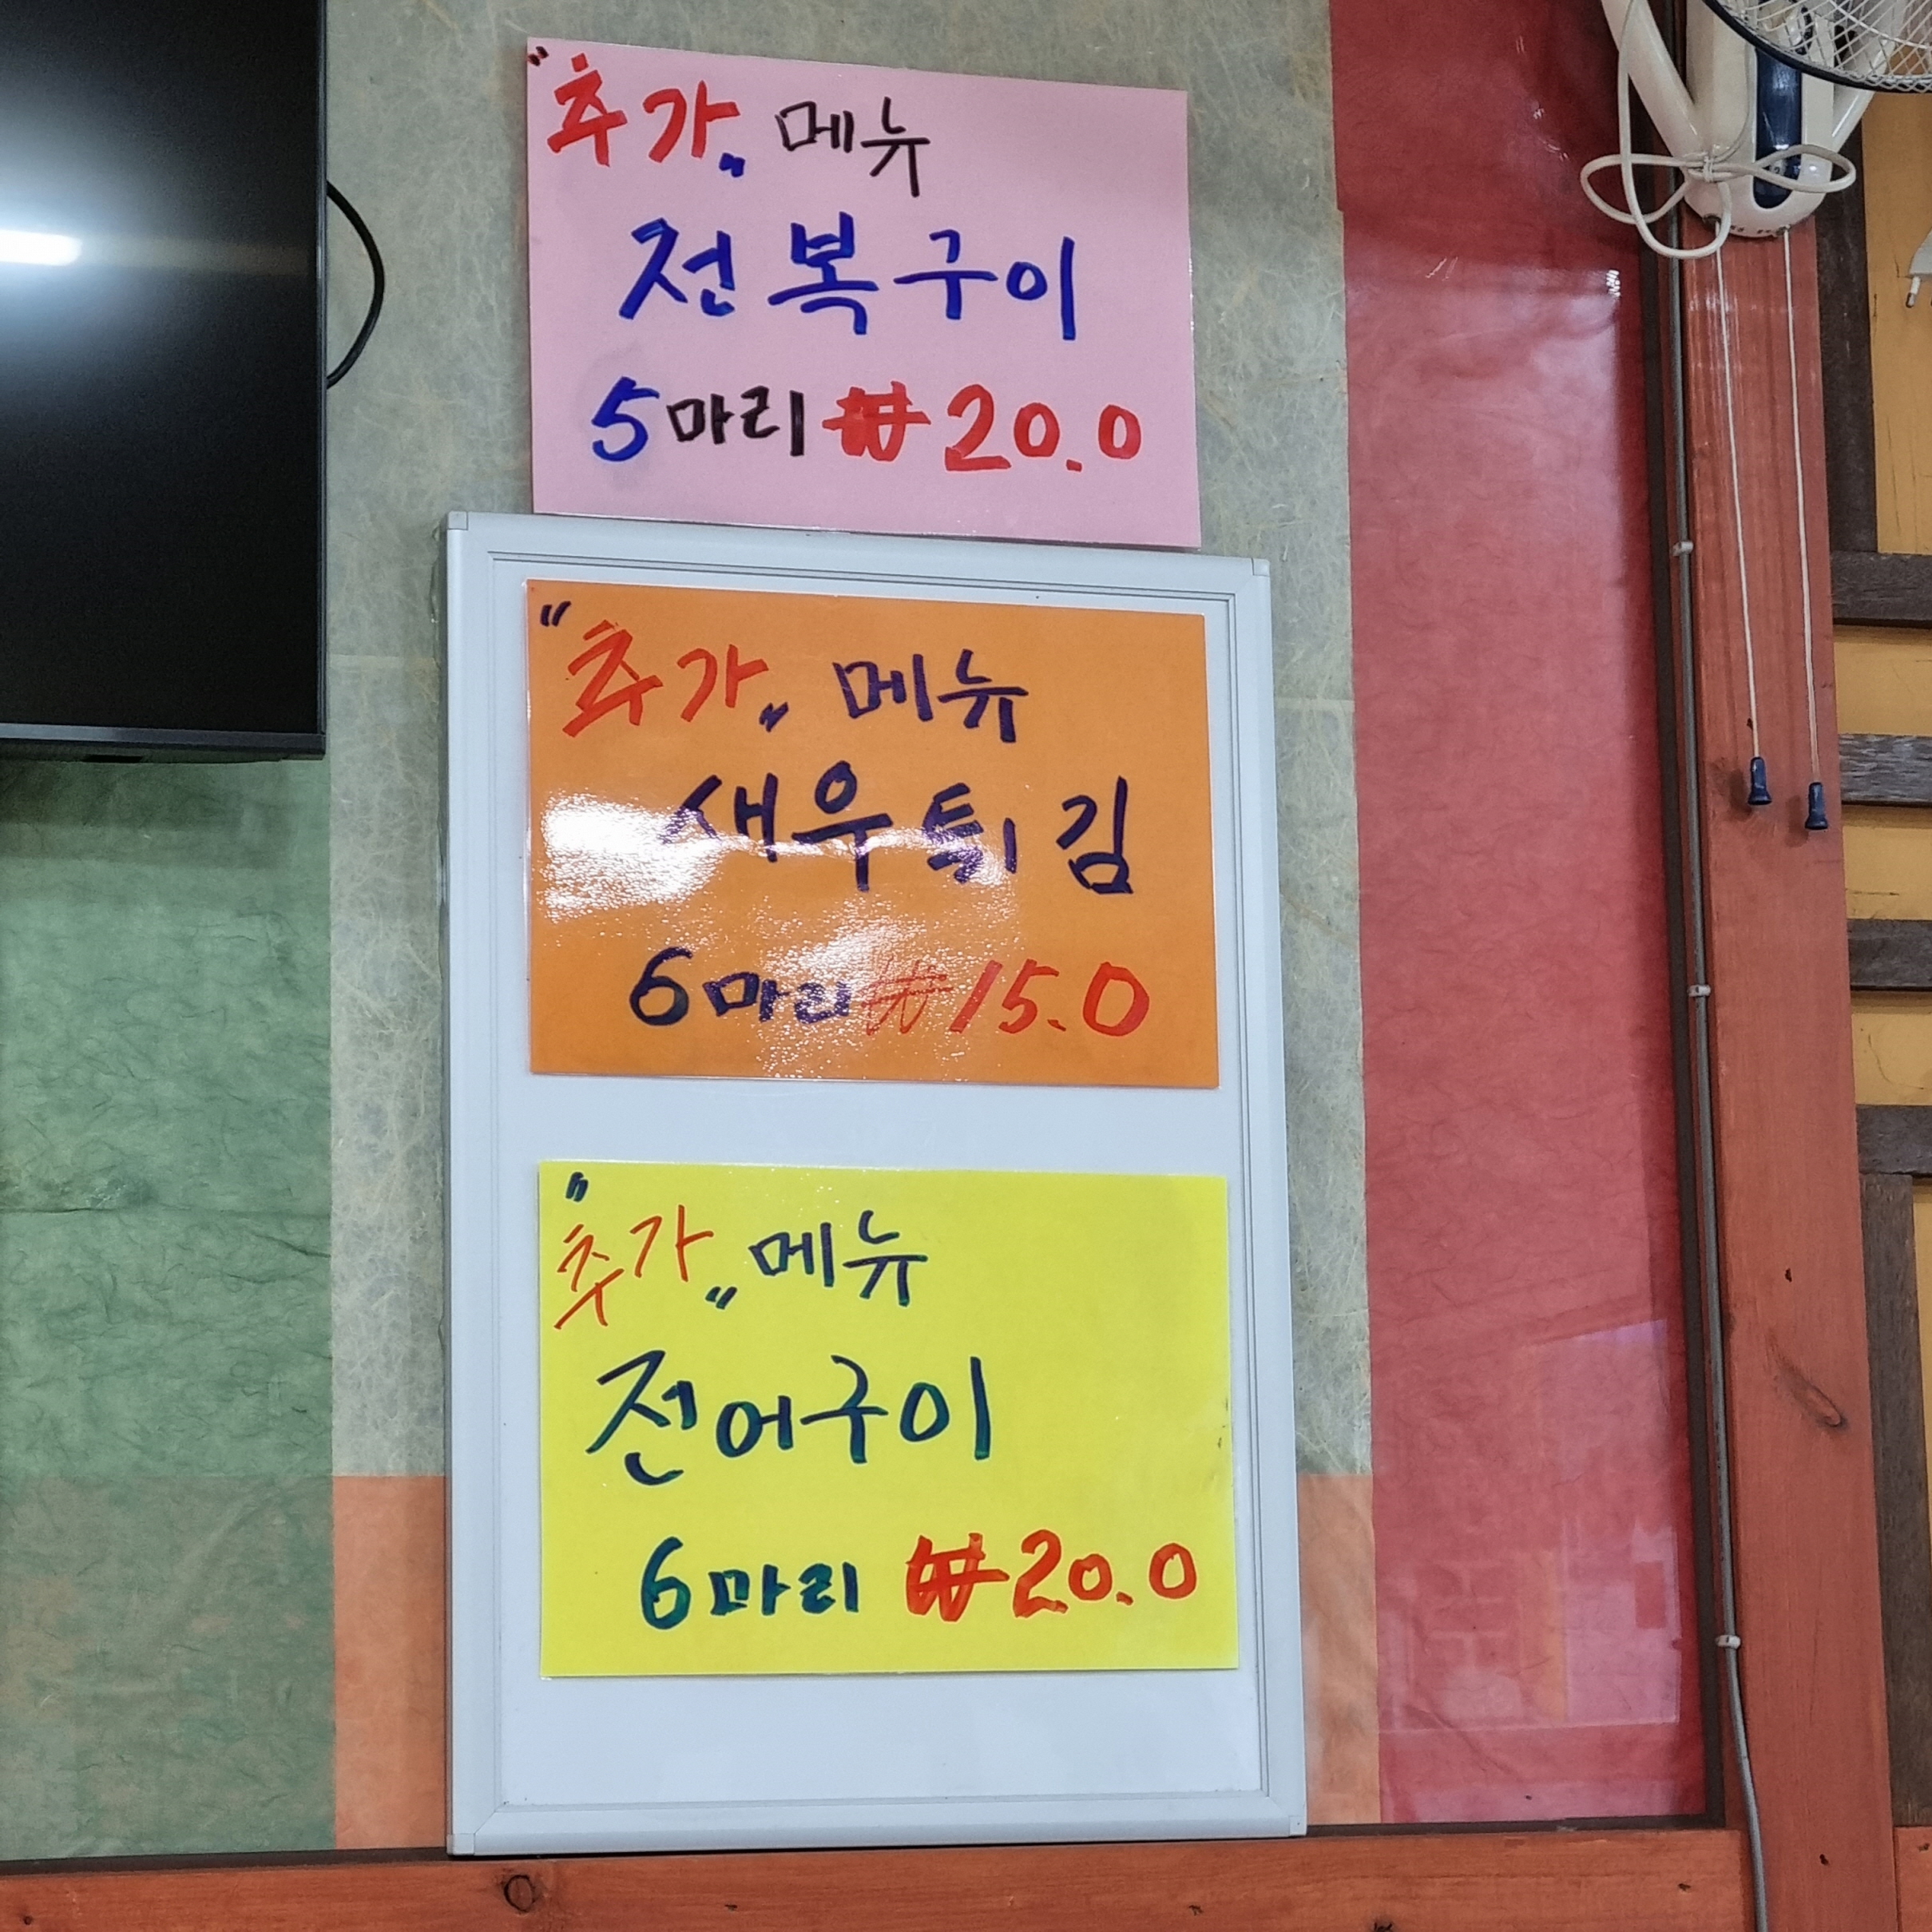 "추가" 메뉴
전복구이
5마리 ₩20.0
"추가" 메뉴
새우튀김
6마리 ₩15.0
"추가" 메뉴
전어구이
6마리 ₩20.0